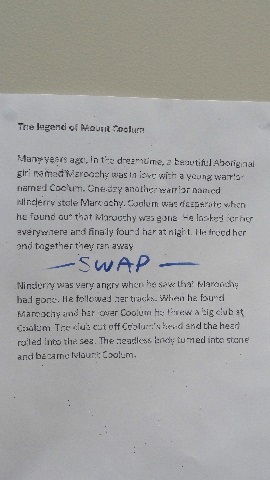 The legend of Mount Coolum
Many years ago, in the dreamtime, a beautiful Aboriginal
girl named Maroochy was in love with a young warrior
named Coolum. One day another warrior named
Ninderry stole Maroochy. Coolum was desperate when
he found out that Maroochy was gone. He looked for her
everywhere and finally found her at night. He freed her
and together they ran away.
— SWAP —
Ninderry was very angry when he saw that Maroochy
had gone. He followed her tracks. When he found
Maroochy and her lover Coolum he threw a big club at
Coolum. The club cut off Coolum's head and the head
rolled into the sea. The headless body turned into stone
and became Mount Coolum.